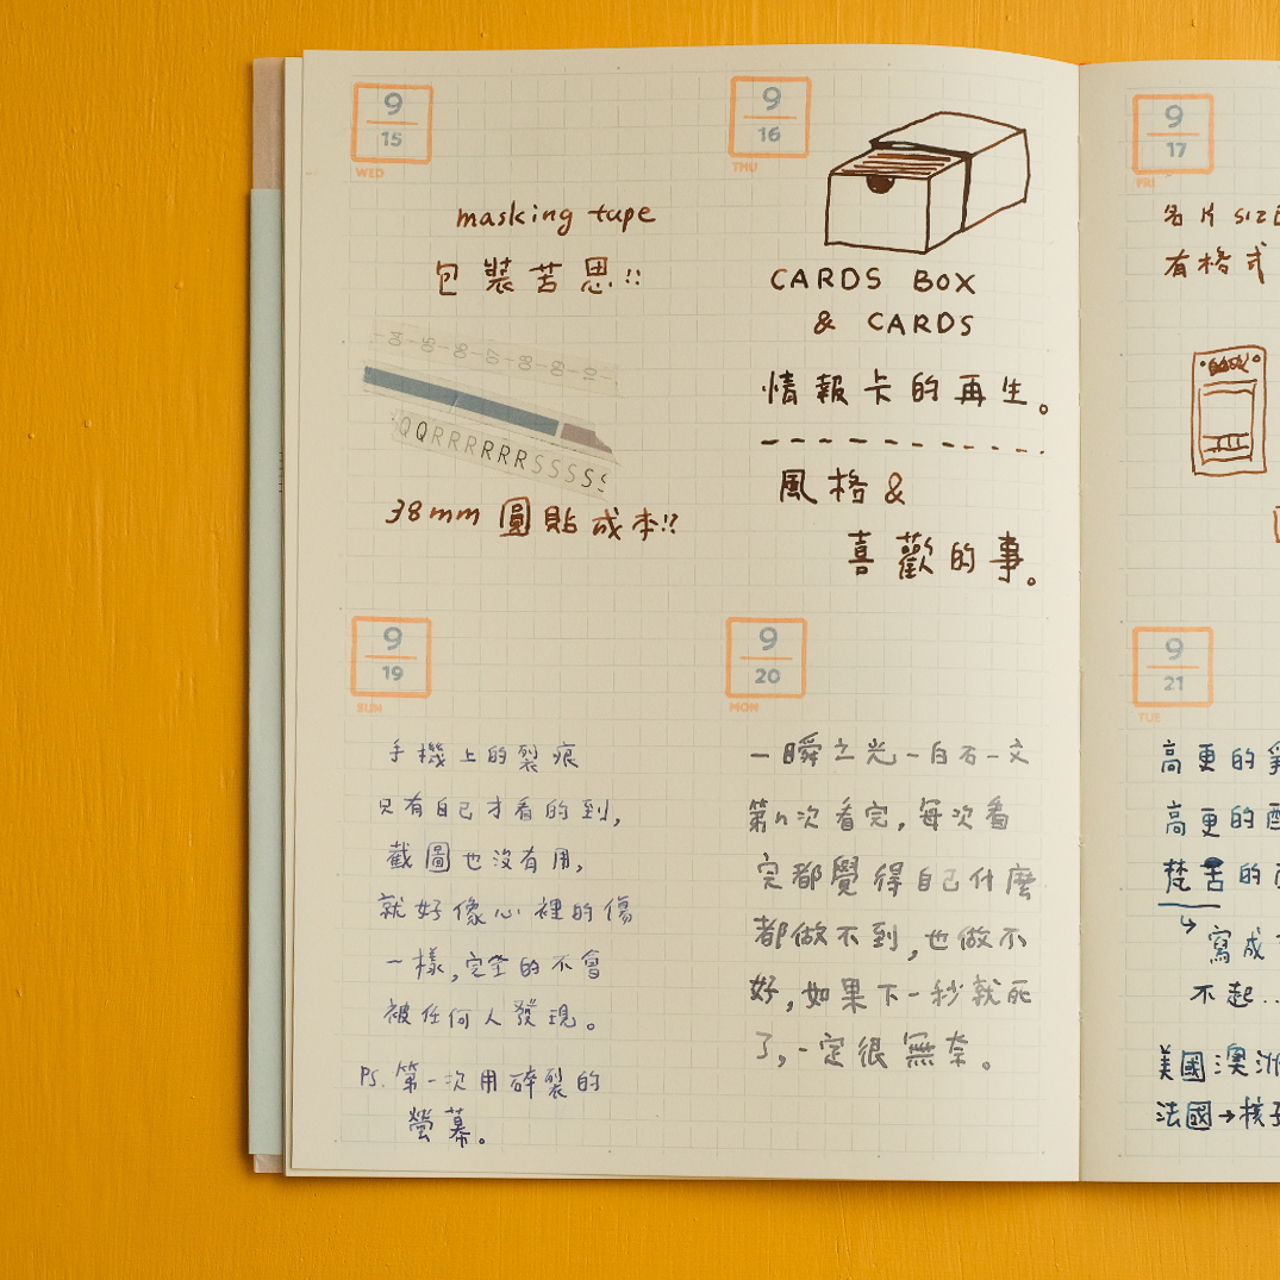 9
15
WED
masking tape
包裝苦思!!
04-05-06-07-08-09-10-
QQRRRRRRSSSSS
38mm 圓貼成本!?
9
16
THU
CARDS BOX
& CARDS
情報卡的再生。
風格&
喜歡的事。
9
17
FRI
名片 SIZE
有格式
9
19
SUN
手機上的裂痕
只有自己才看的到,
截圖也沒有用,
就好像心裡的傷
一樣,完全的不會
被任何人發現。
PS. 第一次用碎裂的
螢幕。
9
20
MON
一瞬之光-白石一文
第n次看完,每次看
完都覺得自己什麼
都做不到,也做不
好,如果下一秒就死
了,一定很無奈。
9
21
TUE
高更的
高更的
梵谷的
↳ 寫成
不起..
美國澳洲
法國→核